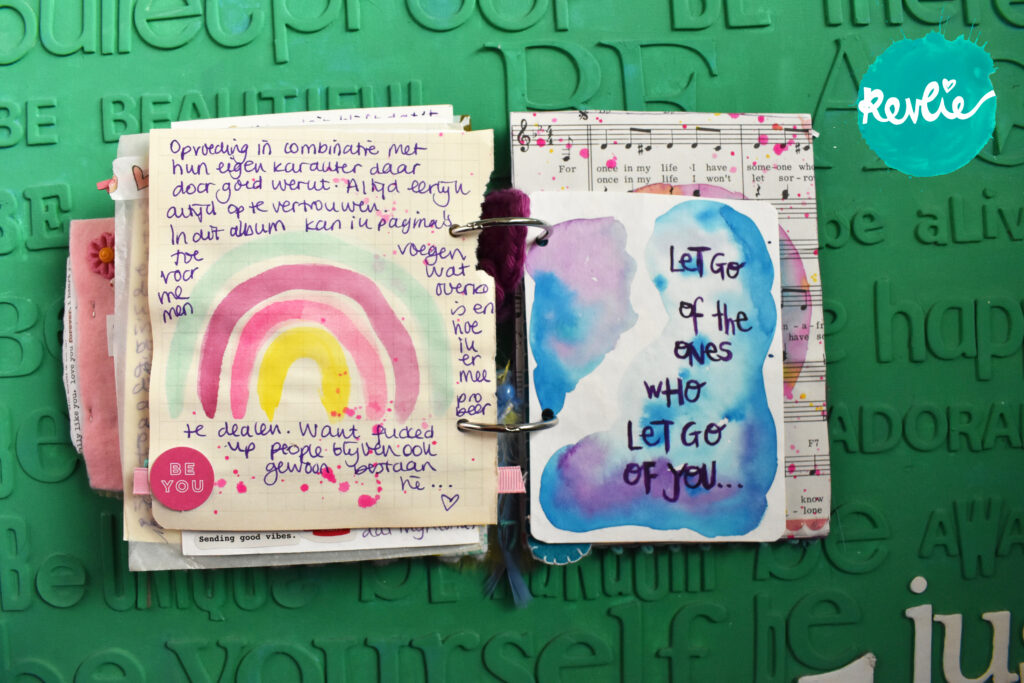 bulletproof BE there
BE BEAUTIFUL
BE
Revlie
be aLiVe
Opvoeding in combinatie met
hun eigen karakter daar
door goed werkt. Altijd eerlijk
altijd op te vertrouwen.
In dit album kan ik pagina's
toe voegen
voor wat
me overko
men is en
hoe
ik
er
mee
pro
beer
te dealen. Want fucked
up people blijven ook
gewoon bestaan
hè...
BE
YOU
Sending good vibes.
For once in my life I have some-one who
once in my life I won't let sor-
LET GO
OF the
ONES
WHO
LET GO
OF YOU...
F7
know
lone
be happ
ADORA
AWA
BE UNIQUE
be yourself be
jus